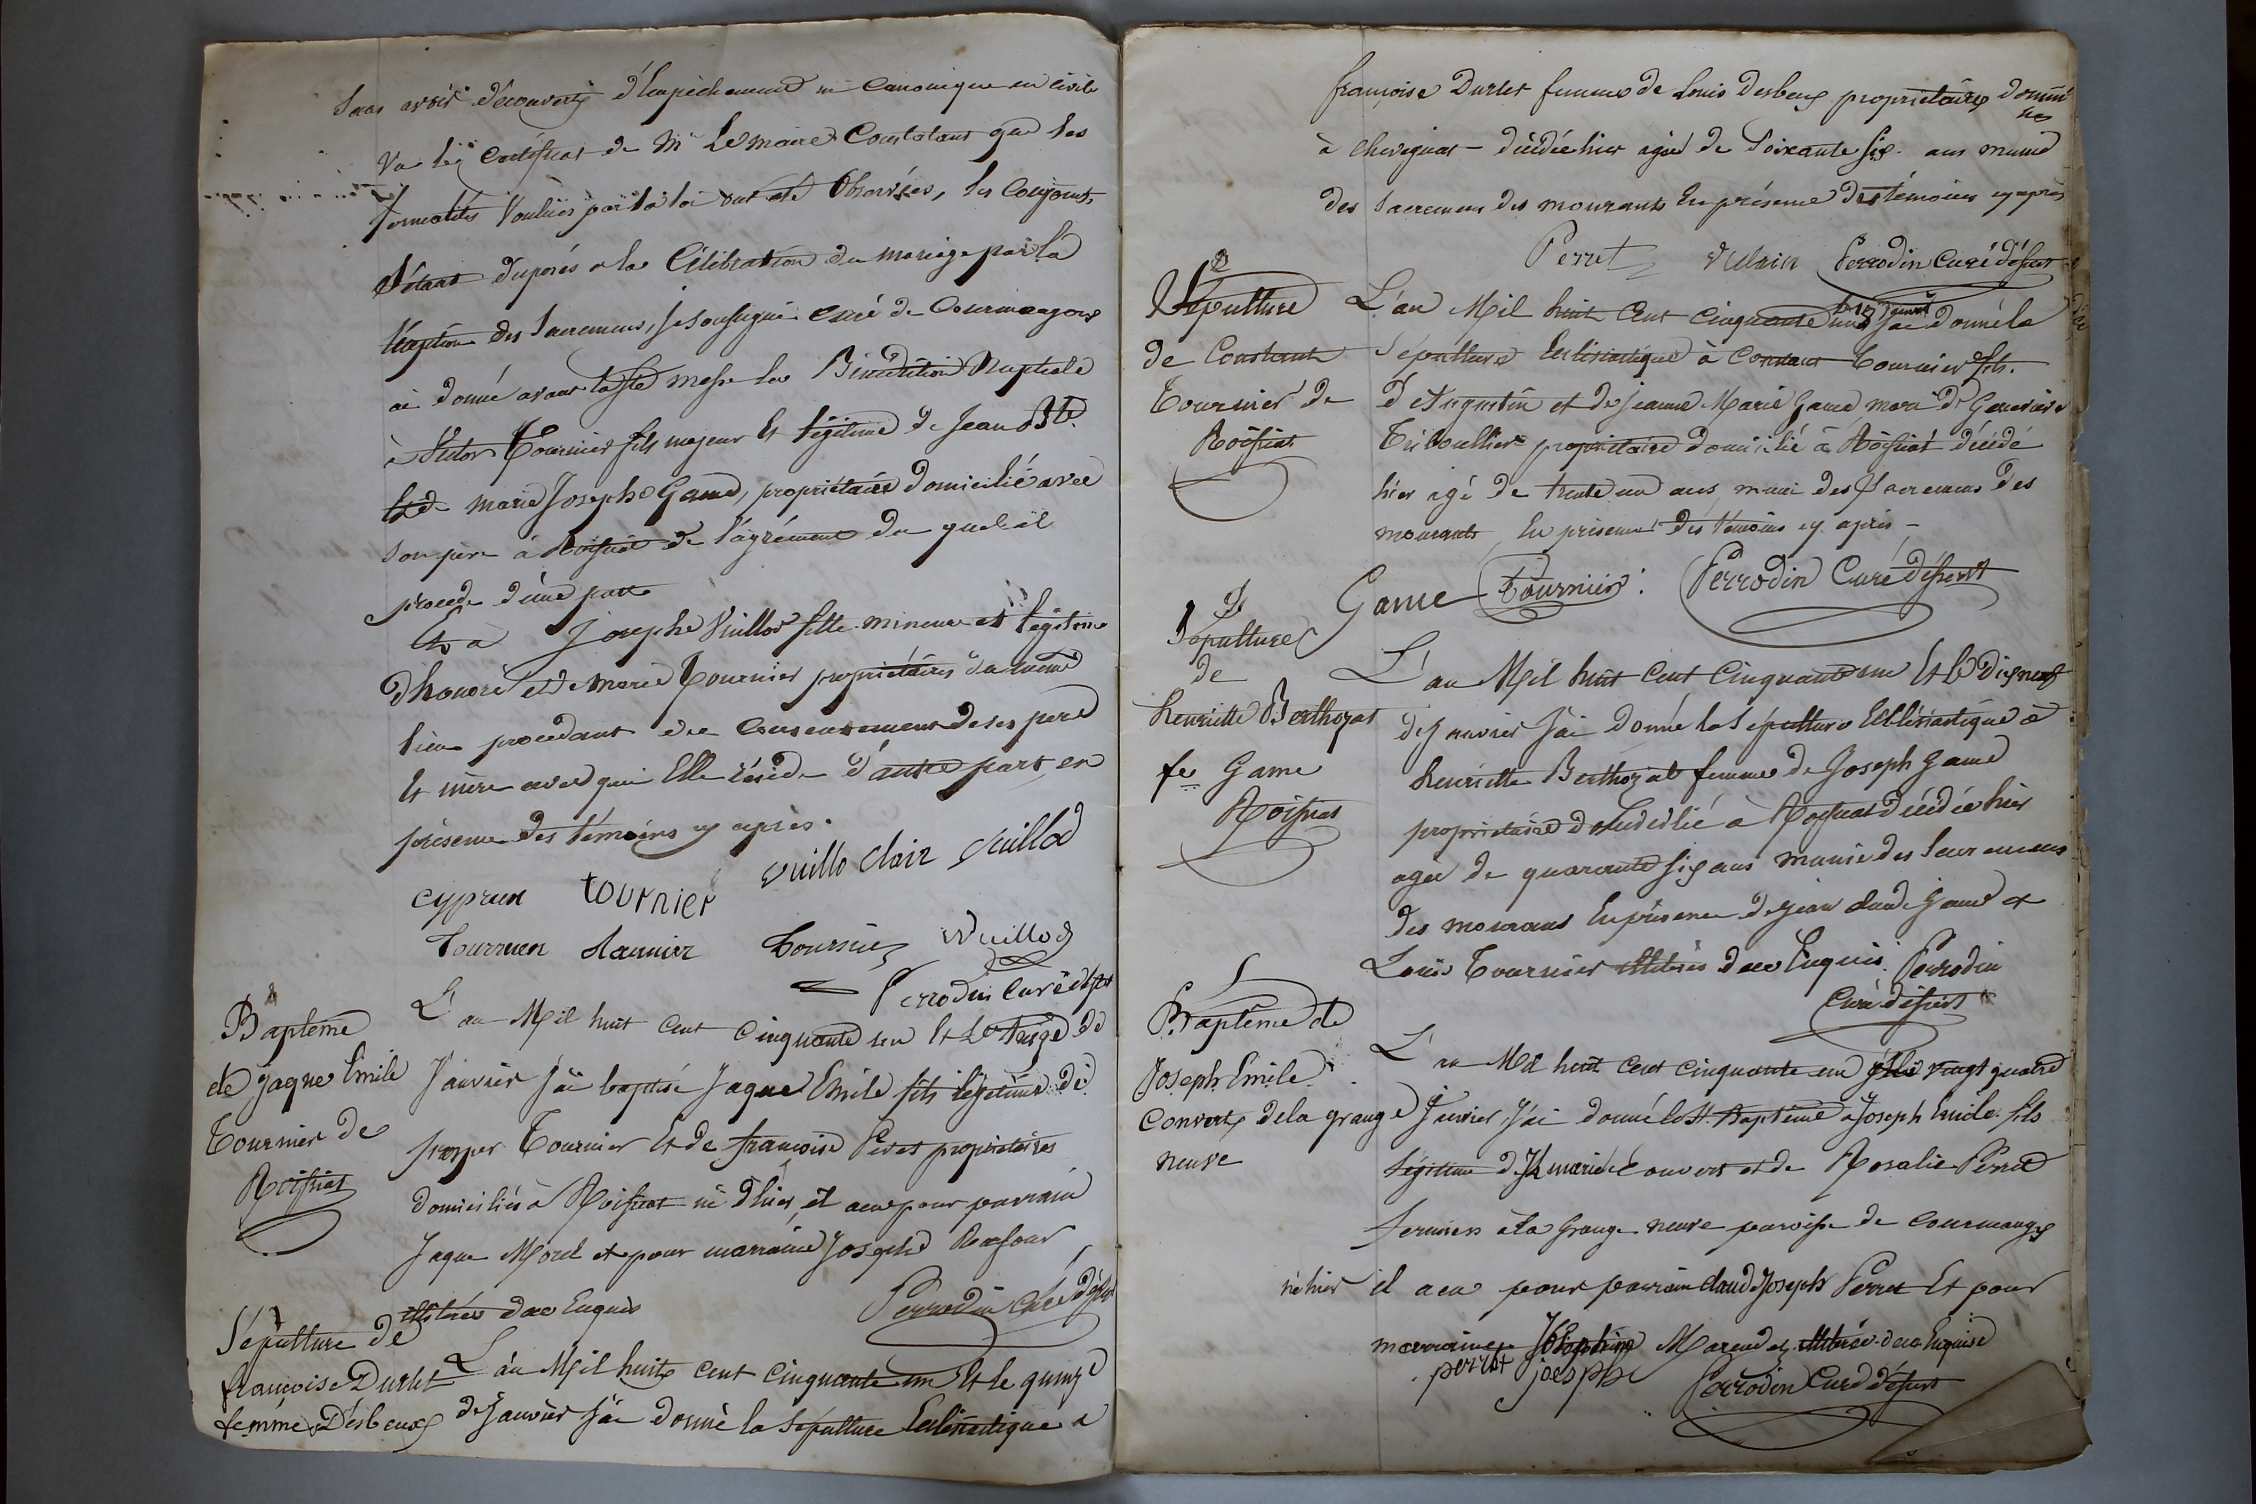 sans avoir découverts d'Empéchement ni canonique ni civils
Vu les certificat de Mr Le maire Constatant que les
formalités Voulues par la loi ont été Observées, les Conjoints
S'étant disposés a la Célébration du mariage par la
réception des Sacremens, je soussigné curé de Courmangoux
ai donné avant la Ste messe la Bénédiction Nuptiale
à Victor Tournier fils majeur et légitime de Jean Bte
et de marie Josephe Game, propriétaire domicilié avec
son père à Roissiat de l'agrément du quel il
procede d'une part
Et à Josephe Vuillod fille mineure et légitime
d'honoré et de marie Tournier propriétaires du meme
lieu procedant du consentement de ses pere
et mère avec qui Elle réside d'autre part, en
présence des témoins cy après.
vuillo clair vuillod
cyprien tournier
tournier Tournier Vuillod
Perrodin Curé desst
Baptème
de Jaque Emile
Tournier de
Roissiat
L'an Mil huit cent cinquante un Et Le treize de
Janvier j'ai baptisé Jaque Emile fils légitime de
prosper Tournier Et de françoise Peret propriétaires
domiciliés à Roissiat né d'hier, il a eu pour parrain
Jaque Morel et pour marraine Josephe
illitérés de ce Enquis Perrodin curé desst
Sépulture de
françoise Durlet
femme Desbeux
L'an Mil huit cent cinquante un Et le quinze
de Janvier j'ai donné la Sépulture Ecclésiastique a
françoise Durlet femme de Louis Desbeux propriétaires domici
liés
à chevignat décédée hier agée de Soixante six ans munie
des Sacremens des mourants En présence des témoins cy après
Perret Perrodin Curé dessert
Sépulture
de Constant
Tournier de
Roissiat
L'an Mil huit Cent cinquante un le 18 Janvier j'ai donné la
Sépulture Ecclésiastique à Constant Tournier fils
d'Augustin et de jeanne Marie Game mari de Genevieve
Tribouillier propriétaire domicilié à Roissiat décédé
hier agé de trente un ans muni des Sacremens des
mourants En présence des témoins cy après
Game Tournier Perrodin Curé dessert
Sépulture
de
henriette Berthozat
fe Game
Roissiat
L'an Mil huit cent cinquante un Et le dixneuf
de janvier j'ai donné la Sépulture Ecclésiastique à
henriette Berthozat femme de Joseph Game
propriétaire domicilié à Roissiat décédée hier
agée de quarante six ans munie des Sacremens
des mourans En présence de jean claude Game et
Louis Tournier illitérés de ce Enquis. Perrodin
Curé dessert
Baptème de
Joseph Emile
convert de la grange
neuve
L'an Mil huit cent cinquante un et le vingt quatre
Janvier j'ai donné le St Baptème a Joseph Emile fils
légitime de Jh marie Convert et de Rosalie Perret
fermiers à la Grange neuve paroisse de Courmangoux
né hier il a eu pour parrain claude Joseph Perret Et pour
marraine Josephine illitérée de ce Enquise
perret joesph Perrodin Curé dessert